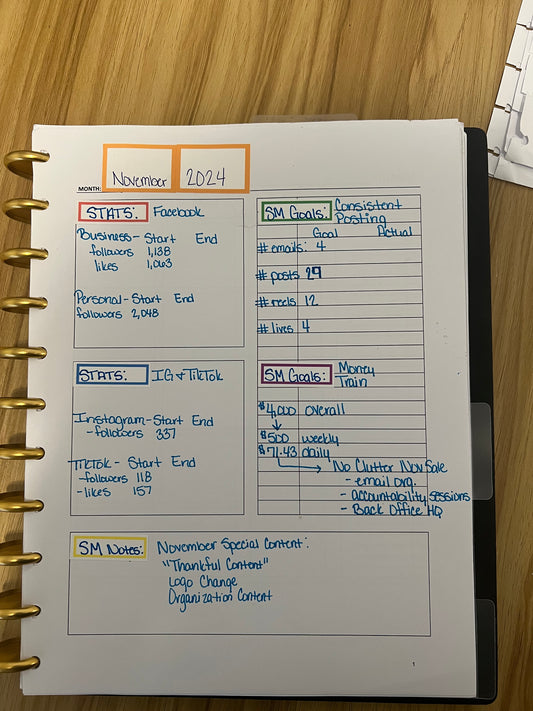 MONTH: November 2024
STATS: Facebook
Business - Start End
followers 1,138
likes 1,063
Personal - Start End
followers 2,048
SM Goals: Consistent
Posting
Goal Actual
# emails: 4
# posts 29
# reels 12
# lives 4
STATS: IG & TikTok
Instagram - Start End
- followers 337
TikTok - Start End
- followers 118
- likes 157
SM Goals: Money
Train
$4,000 overall
$500 weekly
$71.43 daily
No Clutter Nov Sale
- email org.
- accountability sessions
- Back Office HQ
SM Notes: November Special Content:
"Thankful Content"
Logo Change
Organization Content
1